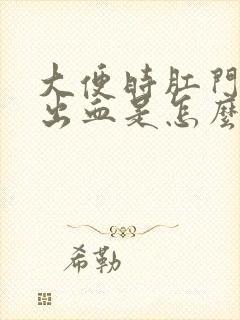 大便時肛門
出血是怎麼
希勒